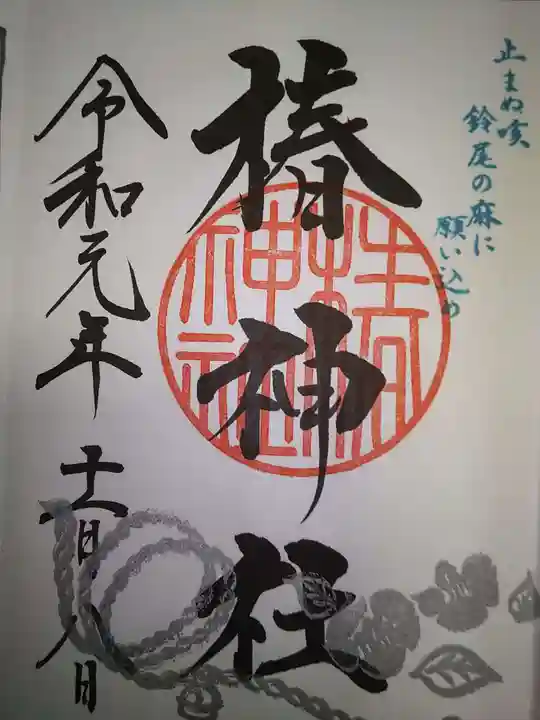 止まぬ咳
鈴尾の麻に
願い込め
椿神社
令和元年十一月八日